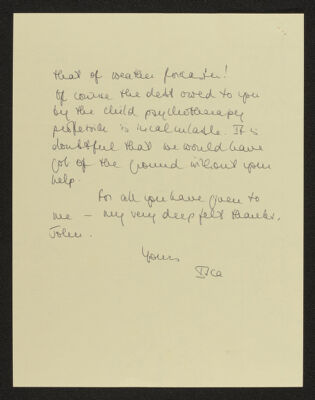 that of weather forecaster!
Of course the debt owed to you
by the child psychotherapy
profession is incalculable. It is
doubtful that we would have
got off the ground without your
help.
For all you have given to
me – my very deep felt thanks,
John.
Yours